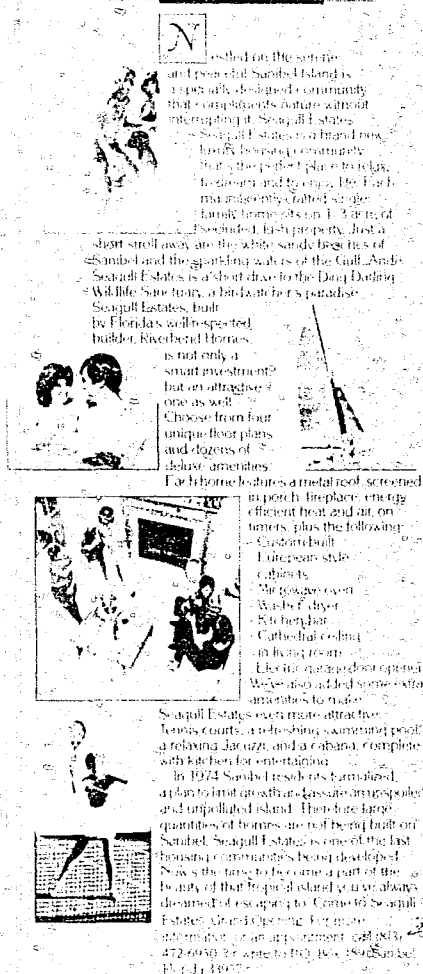 Nestled on the serene
and peaceful Sanibel Island is
a specially designed community
that compliments nature without
interrupting it. Seagull Estates.
Seagull Estates is a brand new
luxury housing community
that's the perfect place to relax,
to dream and to enjoy life. Each
magnificently crafted single
family home sits on 1/3 acre of
secluded, lush property. Just a
short stroll away are the white sandy beaches of
Sanibel and the sparkling waters of the Gulf. And
Seagull Estates is a short drive to the Ding Darling
Wildlife Sanctuary, a birdwatcher's paradise.
Seagull Estates, built
by Florida's well-respected
builder, Riverbend Homes,
is not only a
smart investment
but an attractive
one as well.
Choose from four
unique floor plans
and dozens of
deluxe amenities.
Each home features a metal roof, screened
in porch, fireplace, energy
efficient heat and air, on
timers, plus the following:
- Custom built
European style
cabinets
- Microwave oven
- Washer, dryer
- Kitchen bar
- Cathedral ceiling
in living room
- Electric garage door opener
We've also added some extra
amenities to make
Seagull Estates even more attractive.
Tennis courts, a refreshing swimming pool,
a relaxing Jacuzzi, and a cabana, complete
with kitchen for entertaining.
In 1974 Sanibel residents formalized
a plan to limit growth and assure an unspoiled
and unpolluted island. Therefore large
quantities of homes are not being built on
Sanibel. Seagull Estates is one of the last
housing communities being developed.
Now's the time to become a part of the
beauty of that tropical island you've always
dreamed of escaping to. Come to Seagull
Estates Grand Opening. For more
information or an appointment, call (813)
472-6950. Or write to P.O. Box Sanibel
Florida